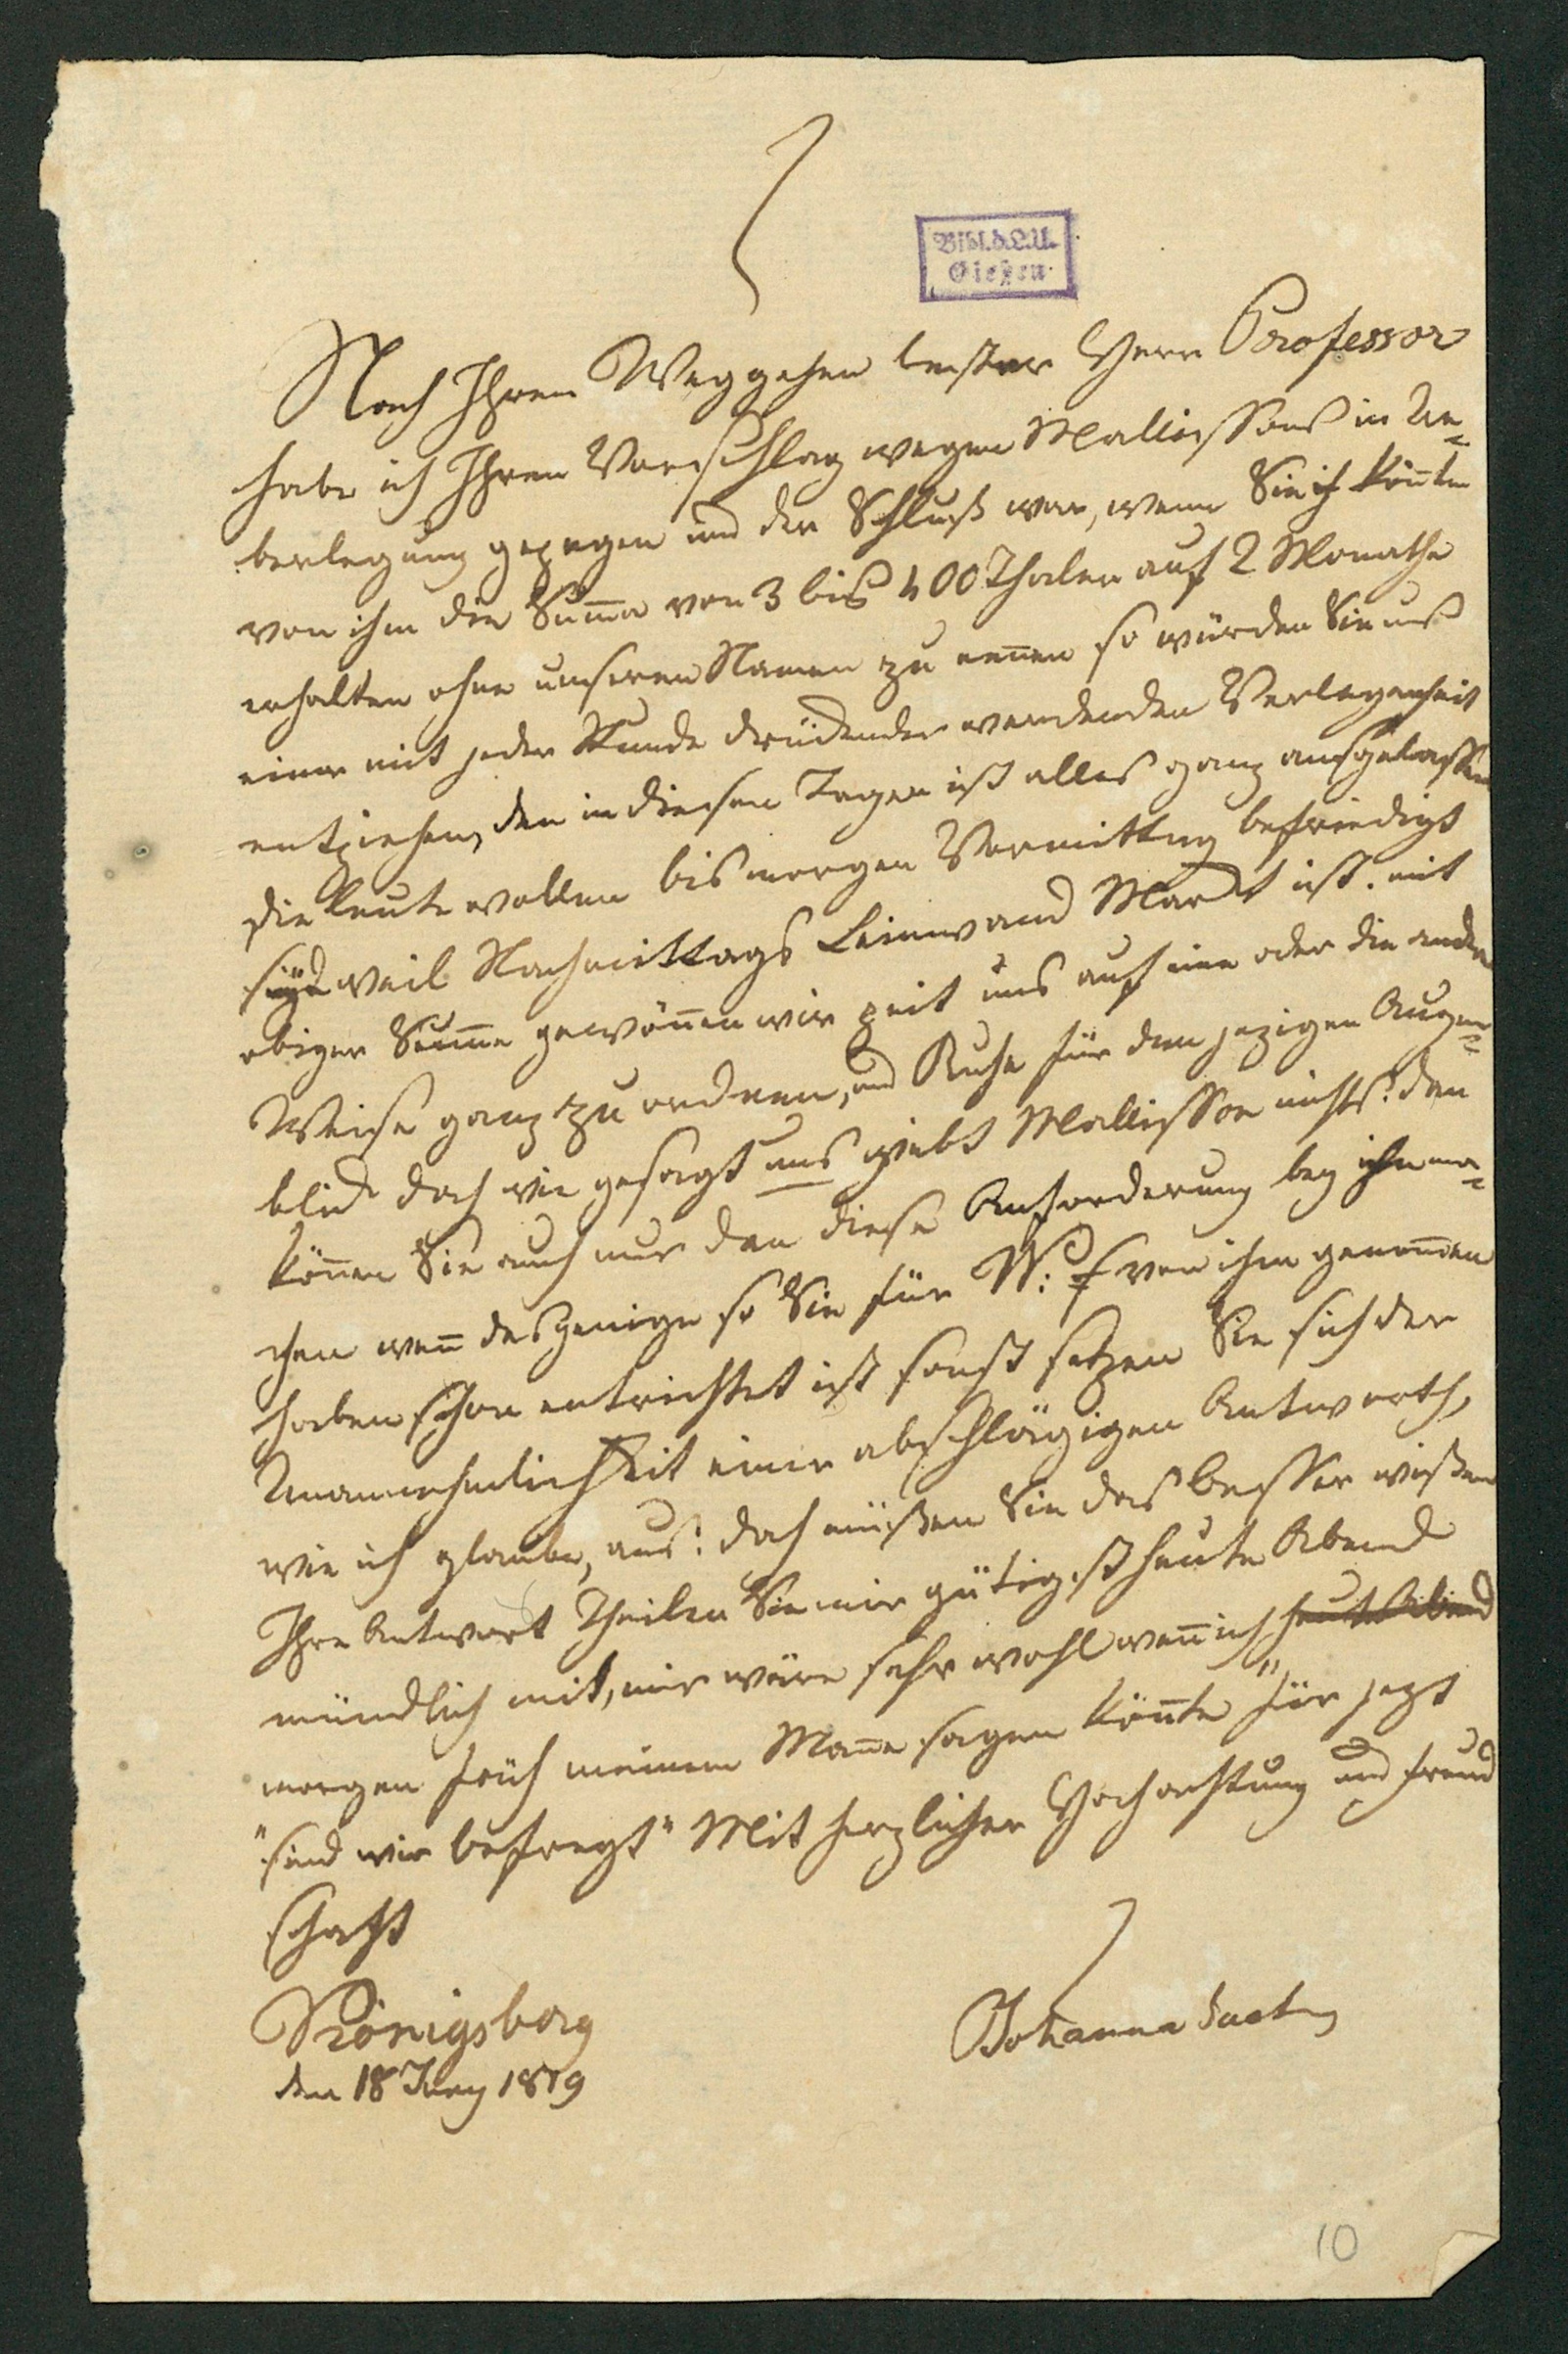 Bibl. d. L. U.
Gießen.
Nach Ihrem Weggehen bester Herr Professor
habe ich Ihren Vorschlag wegen Mallissons in Ue=
berlegung gezogen und der Schluß war, wenn Sie könten
von ihm die Suma von 3 bis 400 Thaler auf 2 Monathe
erhalten ohne unseren Namen zu nenen so würden Sie uns
einer mit jeder Stunde drückender werdenden Verlegenheit
entziehen, den in diesen Tagen ist alles ganz ausgelassen
die Leute wollen bis morgen Vormittag befriedigt
weil Nachmittags Leinwand Markt ist. mit
obiger Sume gewönen wir zeit uns auf eine oder die andre
Weise ganz zu ordnen, und Ruhe für den jezigen Augen=
blick doch wie gesagt uns giebt Mallisson nichts: den
könen Sie auch nur dan diese Anforderung bey ihm ma=
chen wen dasjenige so Sie für W: von ihm genomen
haben schon entrichtet ist sonst setzen Sie sich der
Unannehmlichkeit einer abschlägigen Antworth,
wie ich glaube, aus: doch müßen Sie das besser wißen
Ihre Antwort Theilen Sie mir gütigst heute Abend
mündlich mit, mir wäre sehr wohl wen ich heute Abend
morgen früh meinem Mane sagen könte "für jezt
"sind wir befreyt" Mit herzlicher Hochachtung und Freund
schaft
Königsberg
den 18 Juny 1819
Johanna
10